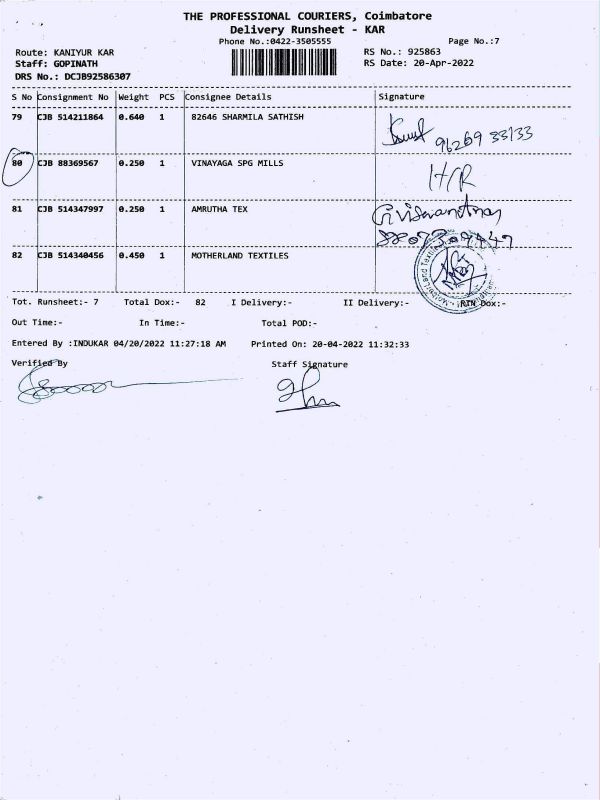 THE PROFESSIONAL COURIERS, Coimbatore
Delivery Runsheet - KAR
Phone No.:0422-3505555 Page No.:7
Route: KANIYUR KAR RS No.: 925863
Staff: GOPINATH RS Date: 20-Apr-2022
DRS No.: DCJB92586307
S No Consignment No Weight PCS Consignee Details Signature
79 CJB 514211864 0.640 1 82646 SHARMILA SATHISH
96269 33133
80 CJB 88369567 0.250 1 VINAYAGA SPG MILLS
81 CJB 514347997 0.250 1 AMRUTHA TEX
82 CJB 514340456 0.450 1 MOTHERLAND TEXTILES
Tot. Runsheet:- 7 Total Dox:- 82 I Delivery:- II Delivery:- RTN Dox:-
Out Time:- In Time:- Total POD:-
Entered By :INDUKAR 04/20/2022 11:27:18 AM Printed On: 20-04-2022 11:32:33
Verified By Staff Signature